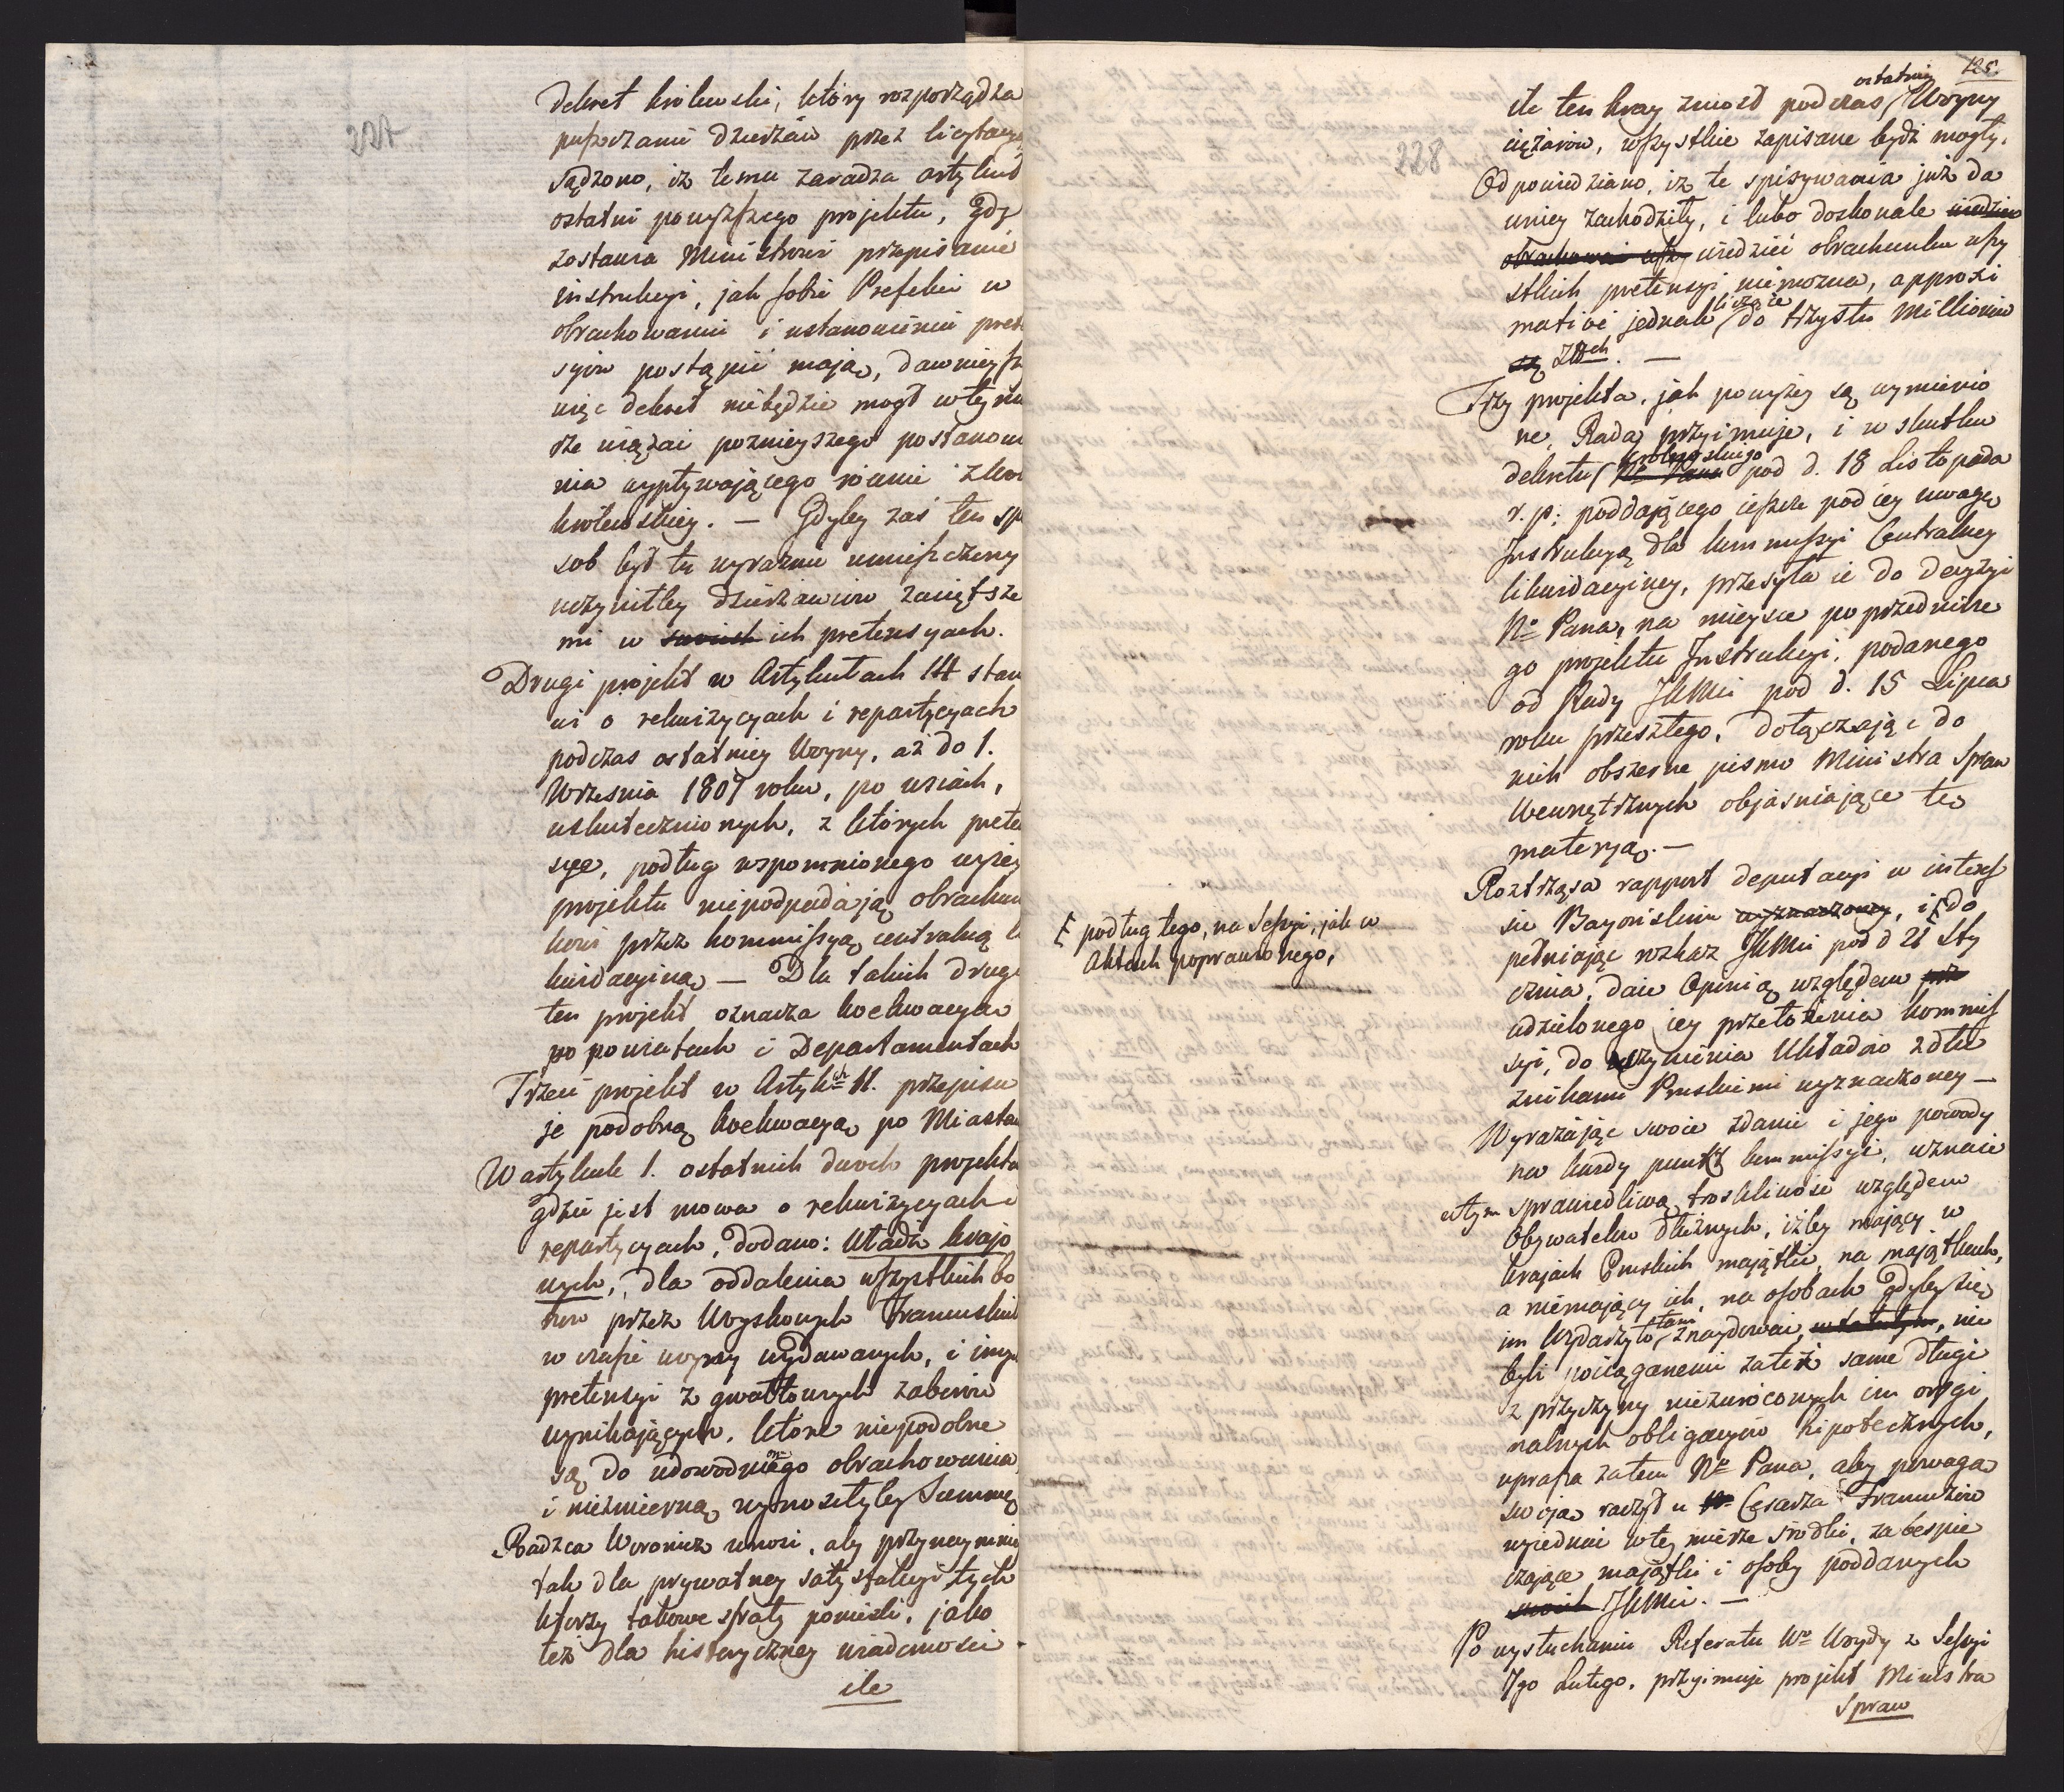 227
Dekret królewski, który rozporządza
puszczanie dzierżaw przez licytacyą
sądzono, iż temu zaradza artykuł
ostatni powyższego projektu, gdy
zostawia Ministrowi przepisanie
instrukcyi, jak sobie Prefekci w
obrachowaniu i ustanowieniu prete
syów postąpić mają, dawnieysz
więc dekret niebędzie mogł w tey mi
rze wiązać poznieyszego postanowi
nia wypływającego równie z wol
królewskiey. — Gdyby zaś ten spo
sob był tu wyraznie umieszczony
uczyniłby dzierżawców zaciętsze
mi w swoich ich pretensyach.
Drugi projekt w Artykułach 14 stan
wi o rekwizycyach i repartycyach
podczas ostatniey Woyny, aż do 1.
Września 1807 roku, po wsiach,
uskutecznionych, z których prete
sye, podług wspomnionego wyżey
projektu niepodpadają obrachun
kowi przez kommissyą centralną li
kwidacyiną — Dla takich drugi
ten projekt oznacza koekwacya
po powiatach i Departamentach
Trzeci projekt w Artykch 11. przepisu
je podobną koekwacyą po Miastach
W artykule 1. ostatnich dwoch projekto
gdzie jest mowa o rekwizycyach i
repartycyach, dodano: Władz krajo
wych, dla oddalenia wszystkich bo
nów przez Woyskowych Francuskich
w czasie woyny wydawanych, i innych
pretensyi z gwałtownych zaborów
wynikających, które niepodobne
są do udowodnionego obrachowania
i niezmierną wynosiłyby Summę
Radzca Woronicz wnosi, aby przynaymniey
tak dla prywatney satysfakcyi tych
którzy takowe straty ponieśli, jako
też dla historyczney wiadomości
ile
228
125.
ostatniey
ile ten kray zniosł podczas Woyny
ciężarów, wszystkie zapisane bydź mogły.
Odpowiedziano, iż te spisywania już da
wniey zachodziły, i lubo doskonale wiedziec
obrachować wszy wiedzieć obrachunku wszy
stkich pretensyi niemożna, approxi
mative jednak licząc ie do trzystu Millionów
są Złłch. —
Trzy projekta, jak powyżey są wymienio
ne, Rada przyimuje, i w skutku
dekretu Nº Pana królewskiego pod d. 18 Listopada
r. p. poddającego ieszcze pod iey uwagę
Instrukcyą dla kommissyi Centralney
likwidacyiney, przesyła ie do decyzyi
Nº Pana, na mieysce poprzednicze
go projektu Instrukcyi, podanego
od Rady JKMci pod d. 15 Lipca
roku przeszłego, dołączając do
nich obszerne pismo Ministra Spraw
Wewnętrznych objasniające tę
materyą. —
Roztrząsa rapport deputacyi w interes
sie Bayońskim wyznaczoney, i do
podług tego, na Sessyi, jak w
Aktach poprawionego,
pełniając rozkaz JKMci pod d 21 Sty
cznia, daie Opinią względem prz
udzielonego iey przełożenia kommis
syi, do uczynienia Układów z dłu
znikami Pruskiemi wyznaczoney —
Wyrażając swoie zdanie i jego powody
na każdy punkt kommissyi, uznaie
w tym sprawiedliwą troskliwość względem
Obywatelów dłużnych, iżby mający w
krajach Pruskich majątki, na majątkach,
a niemający ich, na osobach gdyby się
im wydarzyło tam znaydować, nie
byli pociąganemi za też same długi
z przyczyny niezwróconych im orygi
nalnych obligacyów hipotecznych,
uprasza zatem Nº Pana, aby powagą
swoją raczył u Nº Cesarza Francuzów
wyiednać w tey mierze srodki, zabespie
czające majątki i osoby poddanych
swoich JKMci. —
Po wysłuchaniu Referatu Wº Woydy z Sessyi
7go Lutego, przyimuje projekt Ministra
Spraw